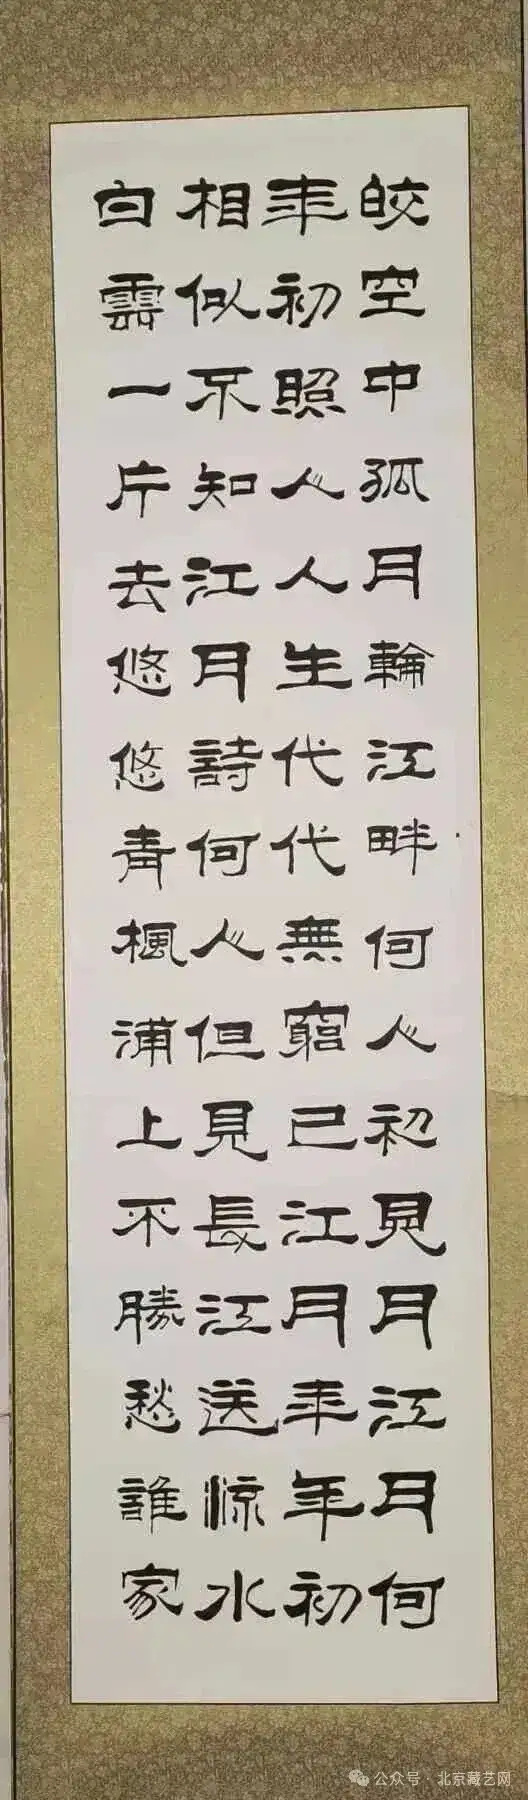 皎空中孤月輪江畔何人初見月江月何
年初照人人生代代無窮已江月年年初
相似不知江月詩何人但見長江送涼水
白雲一片去悠悠青楓浦上不勝愁誰家
公众号 · 北京藏艺网